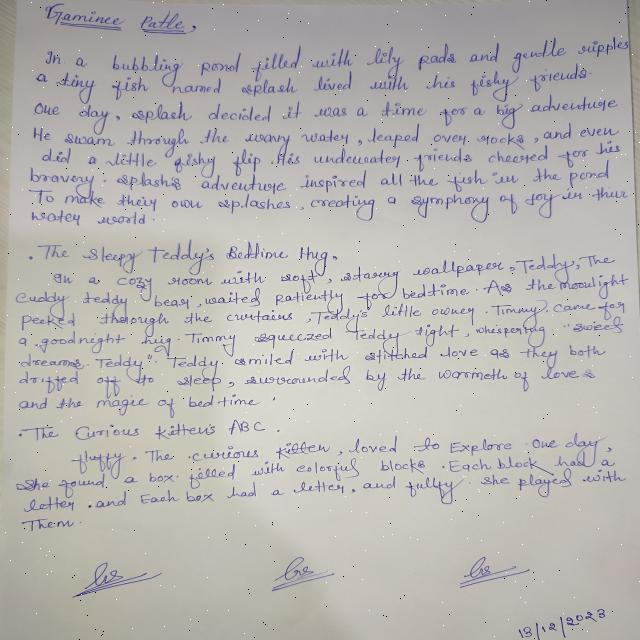 Gaminee Patle,
In a bubbling pond filled with lily pads and gentle ripples
a tiny fish named splash lived with his fishy friends.
One day, splash decided it was a time for a big adventure
He swam through the wavy water, leaped over rocks, and even
did a little fishy flip. His underwater friends cheered for his
bravery. splash's adventure inspired all the fish in the pond
To make their own splashes, creating a symphony of joy in their
water world.
. The Sleepy Teddy's Bedtime Hug.
In a cozy room with soft, starry wallpaper, Teddy, The
cuddy teddy bear, waited patiently for bedtime. As the moonlight
peeked through the curtains, Teddy's little owner. Timmy. came for
a goodnight hug. Timmy squeezed Teddy tight, whispering "sweet
dreams. Teddy". Teddy smiled with stitched love as they both
drifted off to sleep, surrounded by the warmeth of love &
and the magic of bed time.
. The Curious Kitten's ABC.
fluffy. The curious kitten, loved to Explore One day,
she found a box filled with colorful blocks. Each block had a
letter. and Each box had a letter, and fully. she played with
Them.
13/12/2023